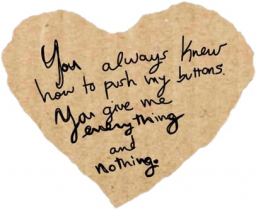 You always knew
how to push my buttons.
You give me
everything
and
nothing.